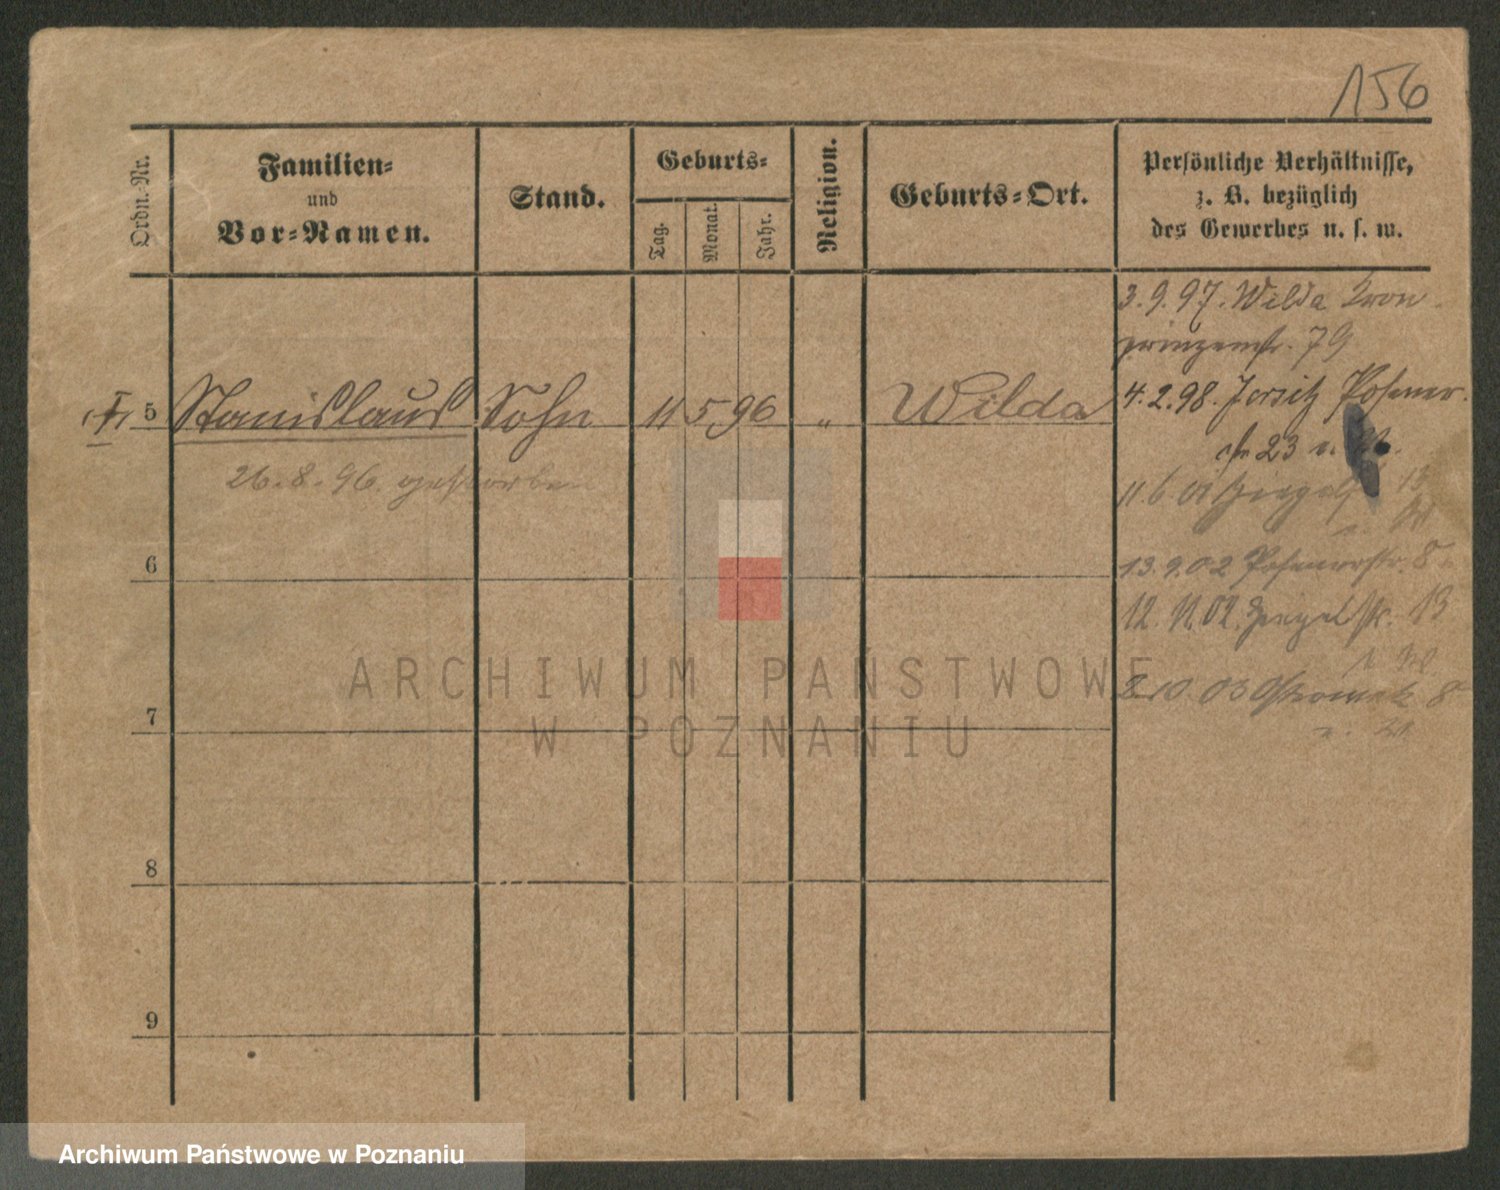 156
Ordn.-Nr.
Familien-
und
Vor-Namen.
Stand.
Geburts-
Tag.
Monat.
Jahr.
Religion.
Geburts-Ort.
Persönliche Verhältnisse,
z. B. bezüglich
des Gewerbes u. s. w.
3.9.97. Wilda Kron
prinzenstr. 79
5 Stanislaus Sohn 11 5 96 " Wilda
4.2.98. Jersitz Posener
str 23
26.8.96. gestorben
11.6.01 13
6
13.9.02 Posenerstr. 8
12.11.02. Ziegelstr. 13
2.10.03 8
7
8
9
ARCHIWUM PAŃSTWOWE
W POZNANIU
Archiwum Państwowe w Poznaniu